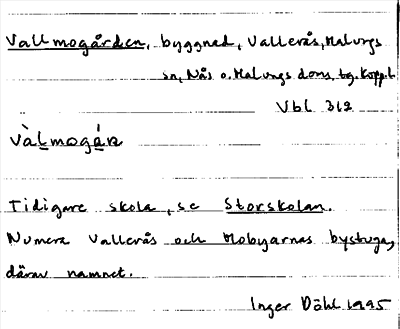 Vallmogården, byggnad, Vallerås, Malungs
sn, Nås o. Malungs doms. tg, Kopp. l.
Vbl 312
vàlmogá̱n
Tidigare skola, se Storskolan.
Numera Vallerås och Mobyarnas bystuga,
därav namnet.
Inger Dåhl 1995